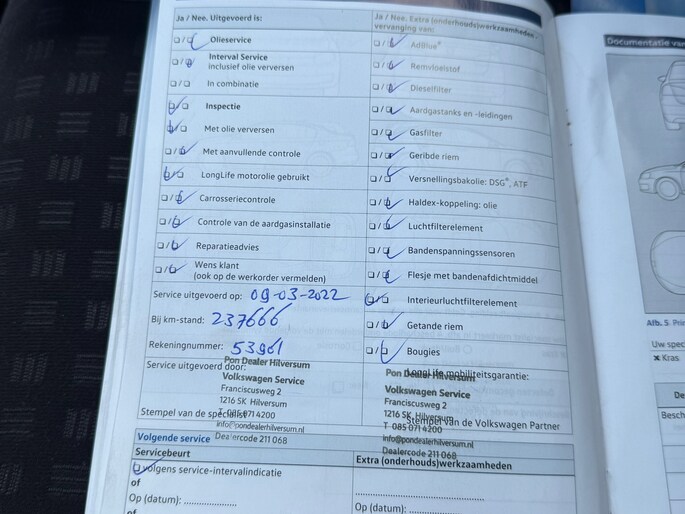 Ja / Nee. Uitgevoerd is:
Olieservice
Interval Service
inclusief olie verversen
In combinatie
Inspectie
Met olie verversen
Met aanvullende controle
LongLife motorolie gebruikt
Carrosseriecontrole
Controle van de aardgasinstallatie
Reparatieadvies
Wens klant
(ook op de werkorder vermelden)
Service uitgevoerd op: 09-03-2022
Bij km-stand: 237666
Rekeningnummer: 53961
Service uitgevoerd door:
Pon Dealer Hilversum
Volkswagen Service
Franciscusweg 2
1216 SK Hilversum
T 085 071 4200
info@pondealerhilversum.nl
Dealercode 211 068
Stempel van de specialist
Ja / Nee. Extra (onderhouds)werkzaamheden -
vervanging van:
AdBlue®
Remvloeistof
Dieselfilter
Aardgastanks en -leidingen
Gasfilter
Geribde riem
Versnellingsbakolie: DSG®, ATF
Haldex-koppeling: olie
Luchtfilterelement
Bandenspanningssensoren
Flesje met bandenafdichtmiddel
Interieurluchtfilterelement
Getande riem
Bougies
LongLife mobiliteitsgarantie:
Pon Dealer Hilversum
Volkswagen Service
Franciscusweg 2
1216 SK Hilversum
T 085 071 4200
info@pondealerhilversum.nl
Dealercode 211 068
Stempel van de Volkswagen Partner
Volgende service
Servicebeurt
volgens service-intervalindicatie
of
Op (datum): ....................
of
Extra (onderhouds)werkzaamheden
Op (datum): ....................
Documentatie van
Afb. 5 Prin
Uw spec
× Kras
De
Besch